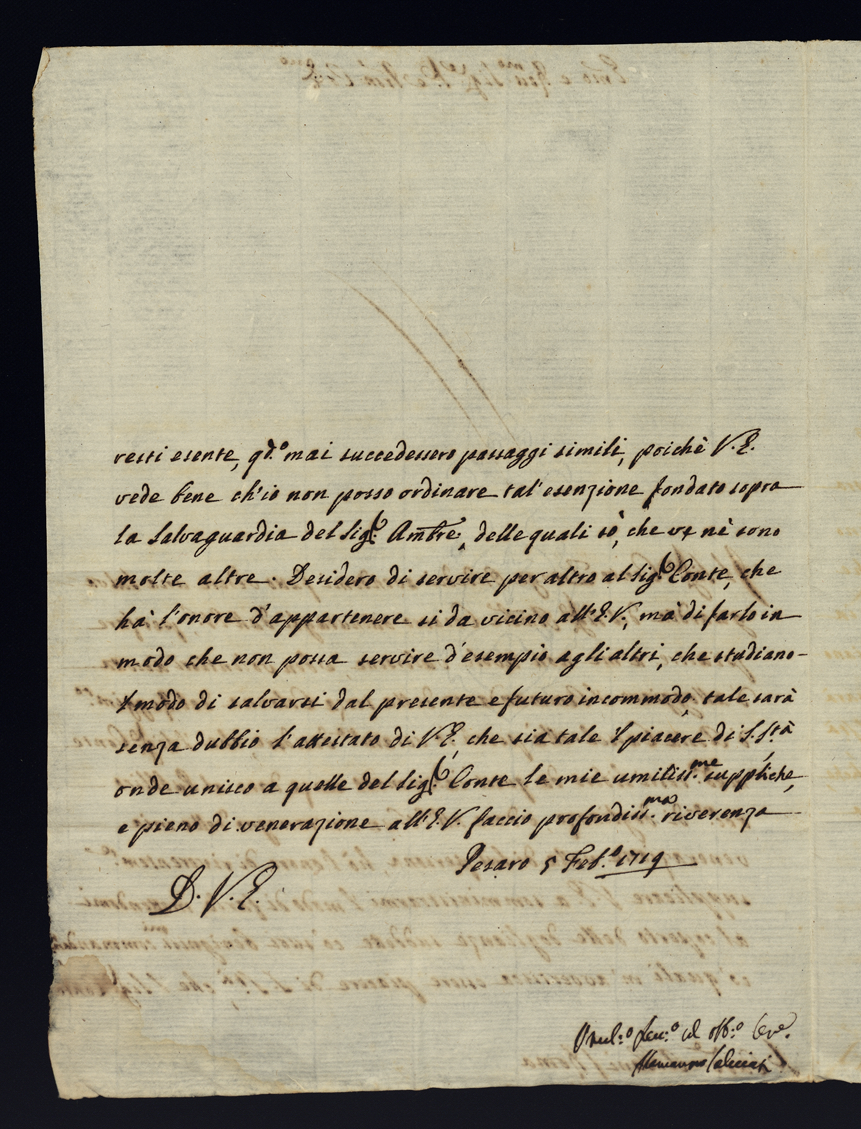 resti esente, q.do mai succedessero passaggi simili, poichè V.E.
vede bene ch'io non posso ordinare tal'esenzione fondato sopra
la Salvaguardia del Sig.r Ambre, delle quali sò, che ve nè sono
molte altre. Desidero di servire per altro al Sig.r Conte, che
hà l'onore d'appartenere si da vicino all'E.V., mà di farlo in
modo che non possa servire d'esempio agli altri, che studiano
il modo di salvarsi dal presente e futuro incommodo, tale sarà
senza dubbio l'attestato di V.E., che sia tale il piacere di S. Stà
onde unisco a quelle del Sig.r Conte le mie umiliss.me suppliche,
e pieno di venerazione all'E.V. faccio profondiss.ma riverenza
Pesaro 5 Feb.o 1719
D. V. E.